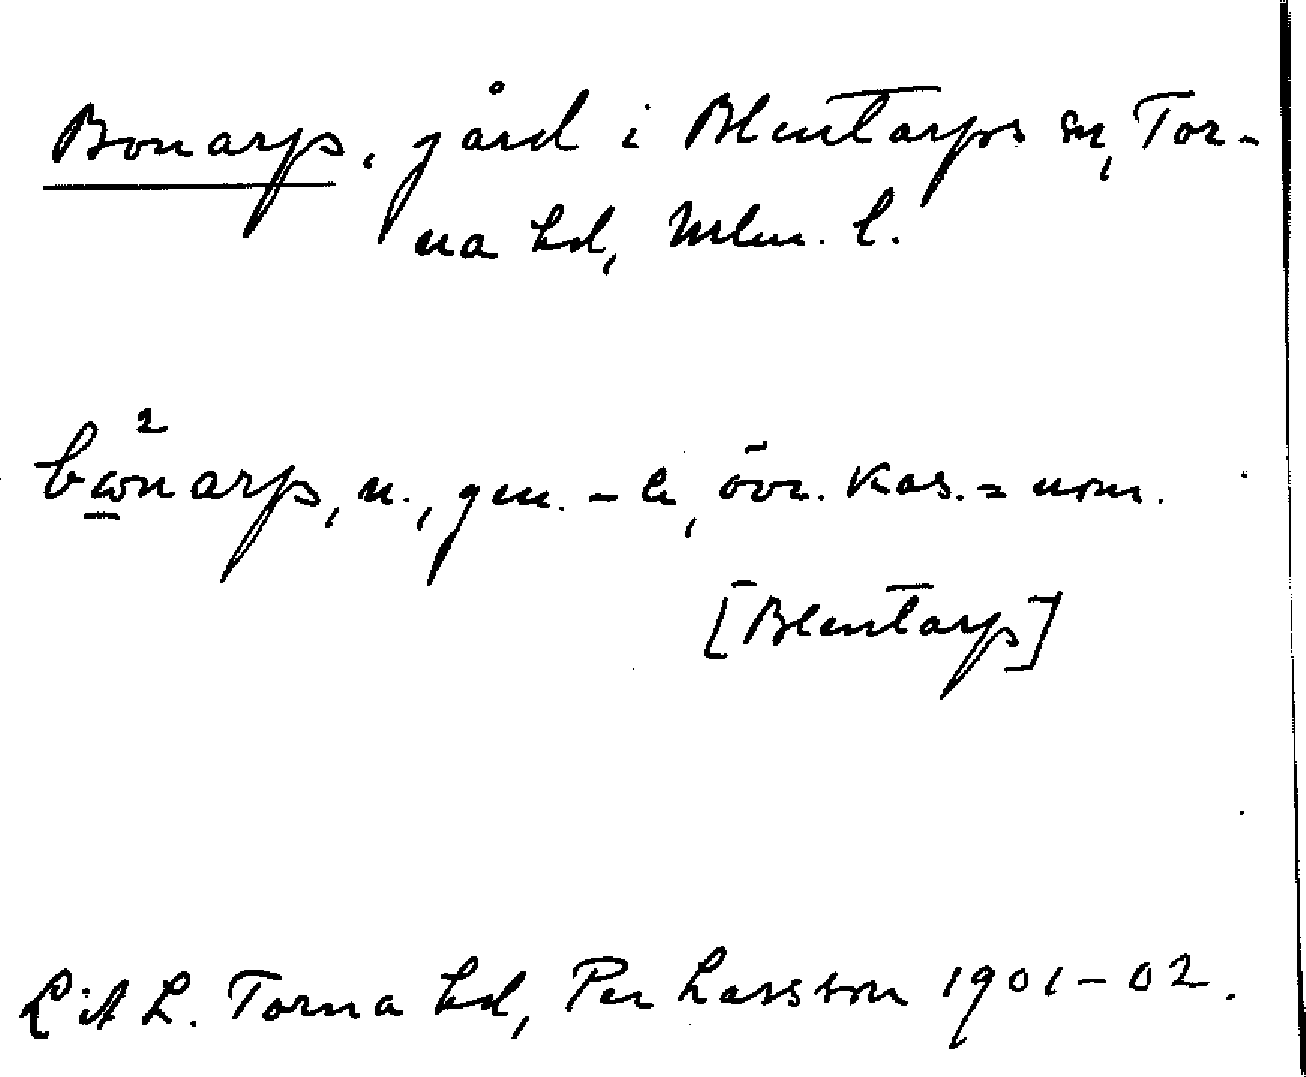 Bonarp, gård i Blentarps sn, Tor-
na hd, Mlm. l.
bω²narp, n., gen. -s, övr. kas. = nom.
[Blentarp]
Lit L. Torna hd, Per Larsson 1901-02.